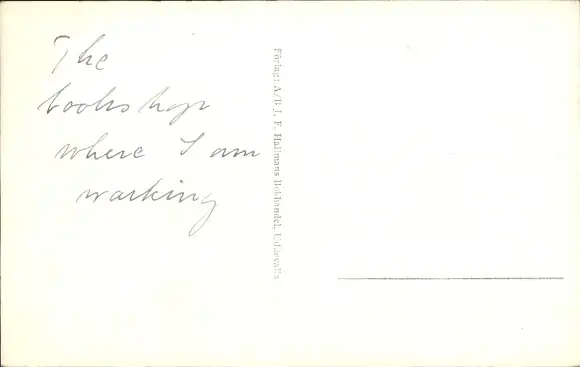 The
bookshop
where I am
working
Förlag: A/B J. F. Hallmans Bokhandel, Uddevalla